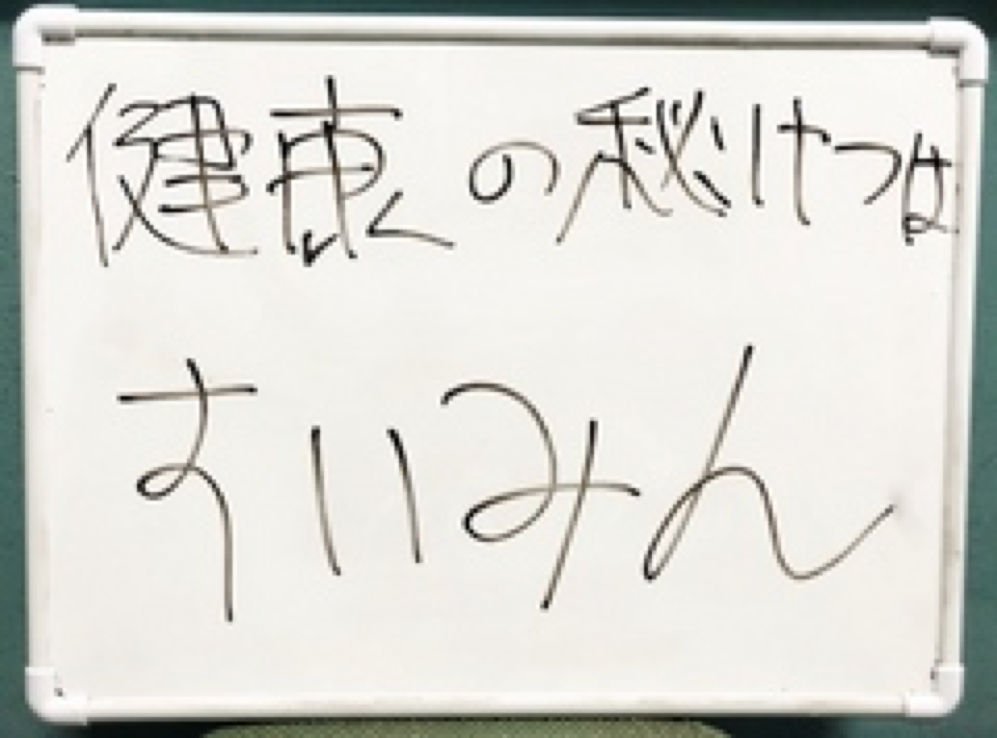 健康の秘けつは
すいみん